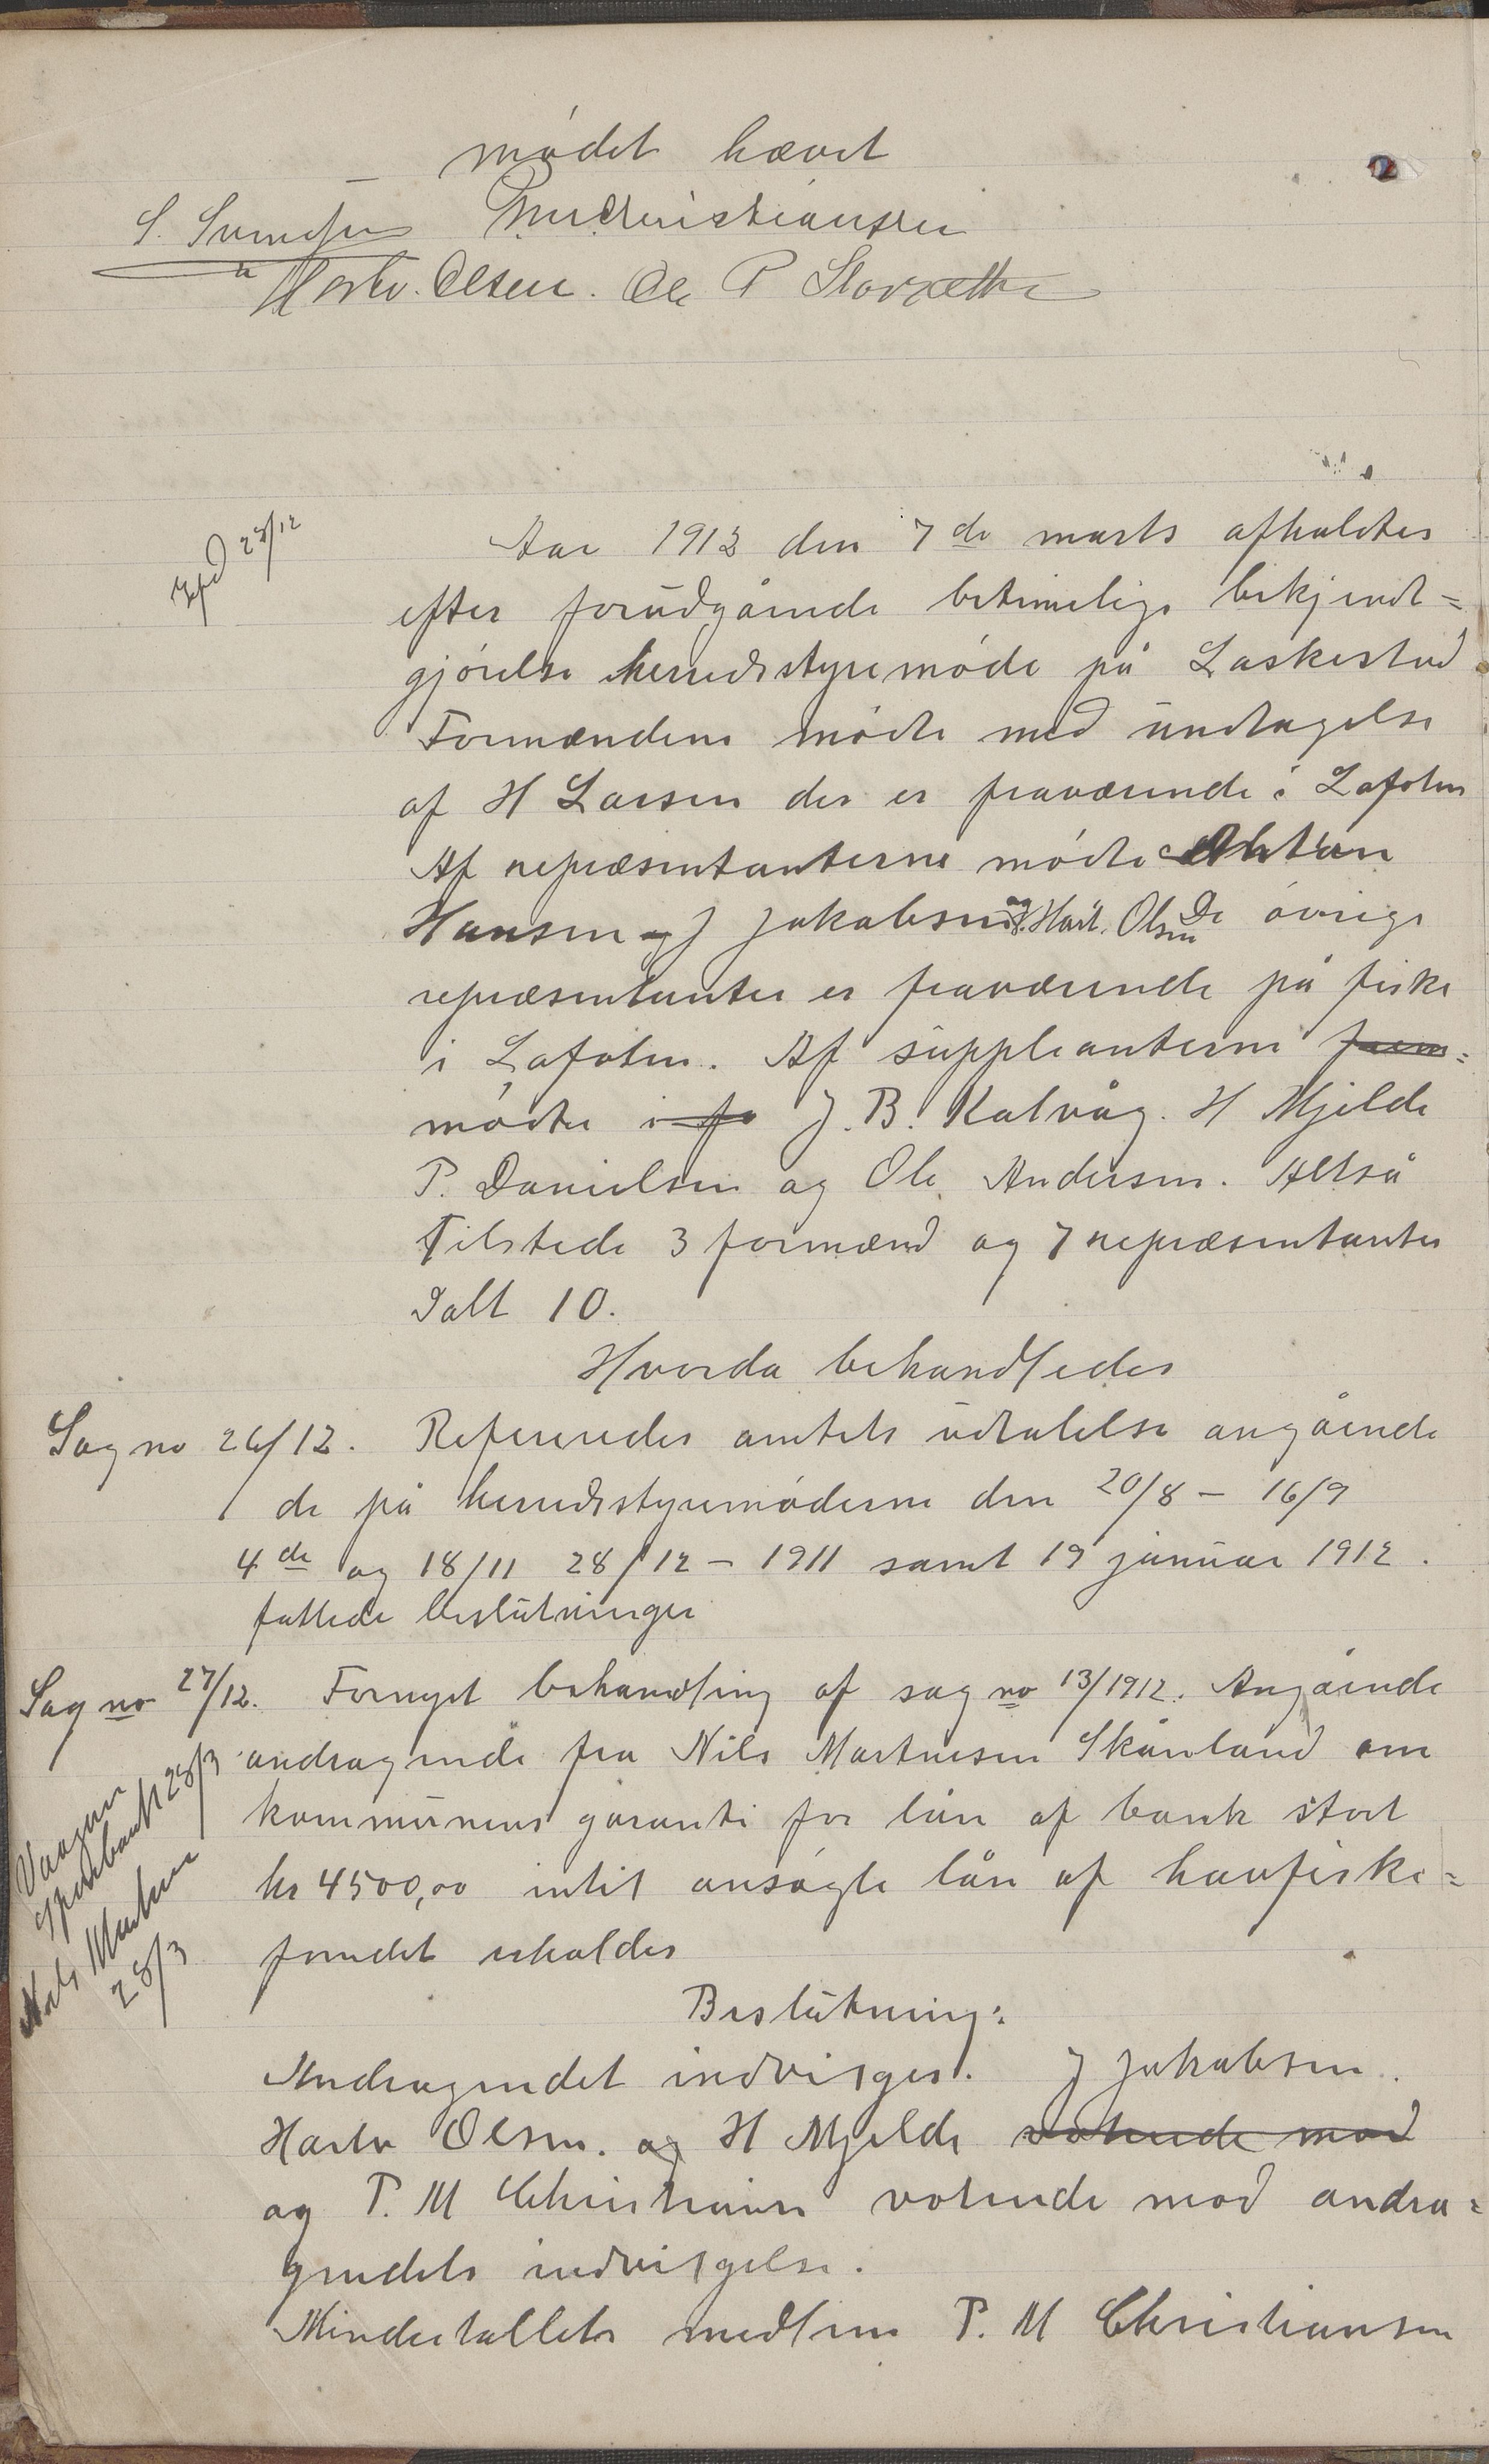 mödet hævet
S. Svendsen P M Christiansen
Hartv. Olsen. Ole P Storsætter
Aar 1912 den 7de marts afholdtes
efter forudgående betimelige bekjendt=
gjörelse herredsstyremöde på Laskestad
Formændene mödte med undtagelse
af H Larsen der er fraværende i Lofoten
Af repræsentanterne mödte Anton
Hansen og J Jakobsen og Hart. Olsen De övrige
repræsentanter er fraværende på fiske
i Lofoten. Af suppleanterne frem=
mödte i fo J. B. Kalvåg. H Mjelde
P. Danielsen og Ole Andersen. Altså
Tilstede 3 formænd og 7 repræsentanter
Ialt 10.
Hvorda behandledes
Sag no 26/12. Refereredes amtets udtalelse angående
de på herredsstyremöderne den 20/8 - 16/9
4de og 18/11 28/12 - 1911 samt 19 januar 1912.
fattede beslutninger
Sag no 27/12. Fornyet behandling af sag no 13/1912. Angående
andragende fra Nils Martinesen Skånland om
kommunens garanti for lån af bank stort
kr 4500,00 intil ansögte lån af havfiske=
fondet erholdes
Vaagan
sparebank 28/3
Nils Martines
28/3
Beslutning:
Andragendet indvilges. J Jakobsen.
Hartv Olsen. og H Mjelde voterede mod
og P. M Christiansen voterede mod andra=
gendets indvilgelse.
Mindretallets medlem P. M Christiansen